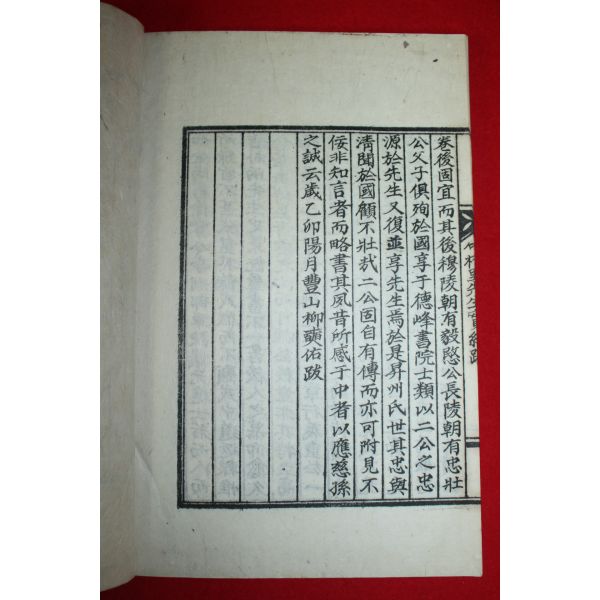 卷後固宜而其後穆陵朝有毅愍公長陵朝有忠壯
公父子俱殉於國享于德峰書院士類以二公之忠
源於先生又復並享先生焉於是昇州氏世其忠與
淸聞於國顧不壯哉二公固自有傳而亦可附見不
佞非知言者而略書其夙昔所感于中者以應慈孫
之誠云歲乙卯陽月豐山柳佑跋
先生實紀跋